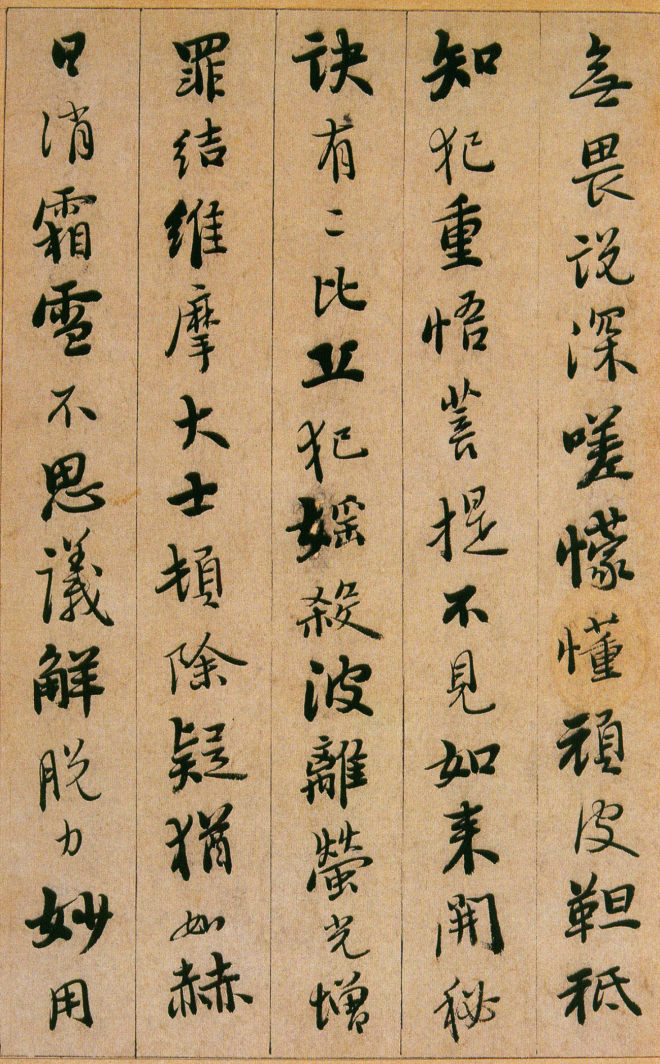 無畏説深嗟懞懂頑皮靼秪
知犯重悟菩提不見如來開秘
訣有二比丘犯婬殺波離螢光憎
罪結維摩大士頓除疑猶如赫
日消霜雪不思議解脱力妙用